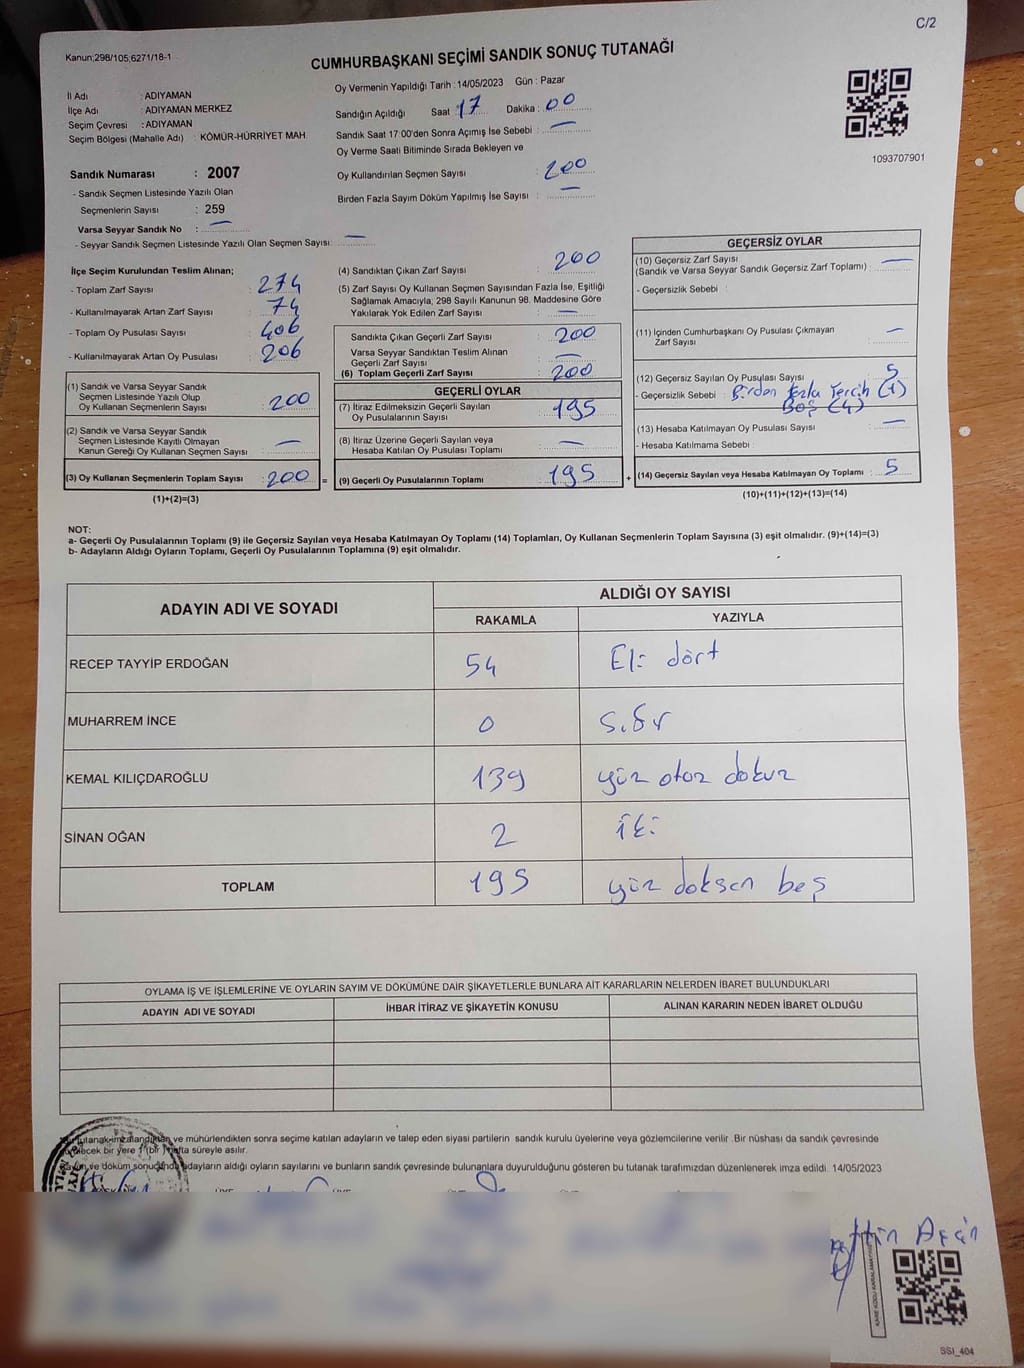 C/2
Kanun;298/105;6271/18-1
CUMHURBAŞKANI SEÇİMİ SANDIK SONUÇ TUTANAĞI
İl Adı : ADIYAMAN
İlçe Adı : ADIYAMAN MERKEZ
Seçim Çevresi : ADIYAMAN
Seçim Bölgesi (Mahalle Adı) : KÖMÜR-HÜRRİYET MAH.
Sandık Numarası : 2007
- Sandık Seçmen Listesinde Yazılı Olan
Seçmenlerin Sayısı : 259
Varsa Seyyar Sandık No : —
- Seyyar Sandık Seçmen Listesinde Yazılı Olan Seçmen Sayısı: —
Oy Vermenin Yapıldığı Tarih : 14/05/2023 Gün : Pazar
Sandığın Açıldığı Saat 17 Dakika : 00
Sandık Saat 17:00'den Sonra Açımış İse Sebebi : —
Oy Verme Saati Bitiminde Sırada Bekleyen ve
Oy Kullandırılan Seçmen Sayısı : 200
Birden Fazla Sayım Döküm Yapılmış İse Sayısı : —
1093707901
İlçe Seçim Kurulundan Teslim Alınan;
- Toplam Zarf Sayısı : 274
- Kullanılmayarak Artan Zarf Sayısı : 74
- Toplam Oy Pusulası Sayısı : 406
- Kullanılmayarak Artan Oy Pusulası : 206
(1) Sandık ve Varsa Seyyar Sandık
Seçmen Listesinde Yazılı Olup
Oy Kullanan Seçmenlerin Sayısı : 200
(2) Sandık ve Varsa Seyyar Sandık
Seçmen Listesinde Kayıtlı Olmayan
Kanun Gereği Oy Kullanan Seçmen Sayısı : —
(3) Oy Kullanan Seçmenlerin Toplam Sayısı : 200 =
(1)+(2)=(3)
(4) Sandıktan Çıkan Zarf Sayısı : 200
(5) Zarf Sayısı Oy Kullanan Seçmen Sayısından Fazla İse, Eşitliği
Sağlamak Amacıyla, 298 Sayılı Kanunun 98. Maddesine Göre
Yakılarak Yok Edilen Zarf Sayısı : —
Sandıkta Çıkan Geçerli Zarf Sayısı : 200
Varsa Seyyar Sandıktan Teslim Alınan
Geçerli Zarf Sayısı : —
(6) Toplam Geçerli Zarf Sayısı : 200
GEÇERLİ OYLAR
(7) İtiraz Edilmeksizin Geçerli Sayılan
Oy Pusulalarının Sayısı : 195
(8) İtiraz Üzerine Geçerli Sayılan veya
Hesaba Katılan Oy Pusulası Toplamı : —
(9) Geçerli Oy Pusulalarının Toplamı : 195 +
GEÇERSİZ OYLAR
(10) Geçersiz Zarf Sayısı
(Sandık ve Varsa Seyyar Sandık Geçersiz Zarf Toplamı) : —
- Geçersizlik Sebebi :
(11) İçinden Cumhurbaşkanı Oy Pusulası Çıkmayan
Zarf Sayısı : —
(12) Geçersiz Sayılan Oy Pusulası Sayısı : 5
- Geçersizlik Sebebi : Birden fazla Tercih (1)
Boş (4)
(13) Hesaba Katılmayan Oy Pusulası Sayısı : —
- Hesaba Katılmama Sebebi :
(14) Geçersiz Sayılan veya Hesaba Katılmayan Oy Toplamı : 5
(10)+(11)+(12)+(13)=(14)
NOT:
a- Geçerli Oy Pusulalarının Toplamı (9) ile Geçersiz Sayılan veya Hesaba Katılmayan Oy Toplamı (14) Toplamları, Oy Kullanan Seçmenlerin Toplam Sayısına (3) eşit olmalıdır. (9)+(14)=(3)
b- Adayların Aldığı Oyların Toplamı, Geçerli Oy Pusulalarının Toplamına (9) eşit olmalıdır.
ADAYIN ADI VE SOYADI ALDIĞI OY SAYISI
RAKAMLA YAZIYLA
RECEP TAYYİP ERDOĞAN 54 Eli dört
MUHARREM İNCE 0 sıfır
KEMAL KILIÇDAROĞLU 139 yüz otuz dokuz
SİNAN OĞAN 2 iki
TOPLAM 195 yüz doksan beş
OYLAMA İŞ VE İŞLEMLERİNE VE OYLARIN SAYIM VE DÖKÜMÜNE DAİR ŞİKAYETLERLE BUNLARA AİT KARARLARIN NELERDEN İBARET BULUNDUKLARI
ADAYIN ADI VE SOYADI İHBAR İTİRAZ VE ŞİKAYETİN KONUSU ALINAN KARARIN NEDEN İBARET OLDUĞU
tutanak imzalandıktan ve mühürlendikten sonra seçime katılan adayların ve talep eden siyasi partilerin sandık kurulu üyelerine veya gözlemcilerine verilir .Bir nüshası da sandık çevresinde
bir yere 1 (bir) hafta süreyle asılır.
Sayım ve döküm sonucunda adayların aldığı oyların sayılarını ve bunların sandık çevresinde bulunanlara duyurulduğunu gösteren bu tutanak tarafımızdan düzenlenerek imza edildi. 14/05/2023
SSI_404